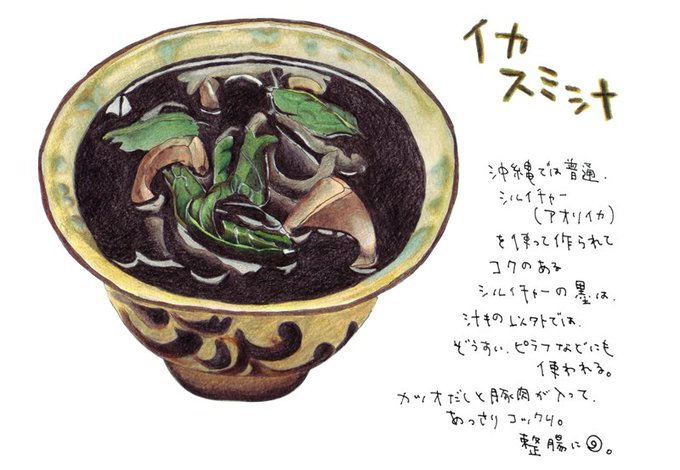 イカ
スミ汁
沖縄では普通、
シルイチャー
(アオリイカ)
を使って作られて
コクのある
シルイチャーの墨は、
汁もの以外では、
ぞうすい、ピラフなどにも
使われる。
カツオだしと豚肉が入って、
あっさりコックリ。
整腸に◎。